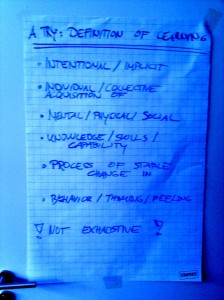 A TRY: DEFINITION OF LEARNING
• INTENTIONAL / IMPLICIT
• INDIVIDUAL / COLLECTIVE
ACQUISITION OF
• MENTAL / PHYSICAL / SOCIAL
• KNOWLEDGE / SKILLS /
CAPABILITY
• PROCESS OF STABLE
CHANGE IN
• BEHAVIOR / THINKING / FEELING
! NOT EXHAUSTIVE !